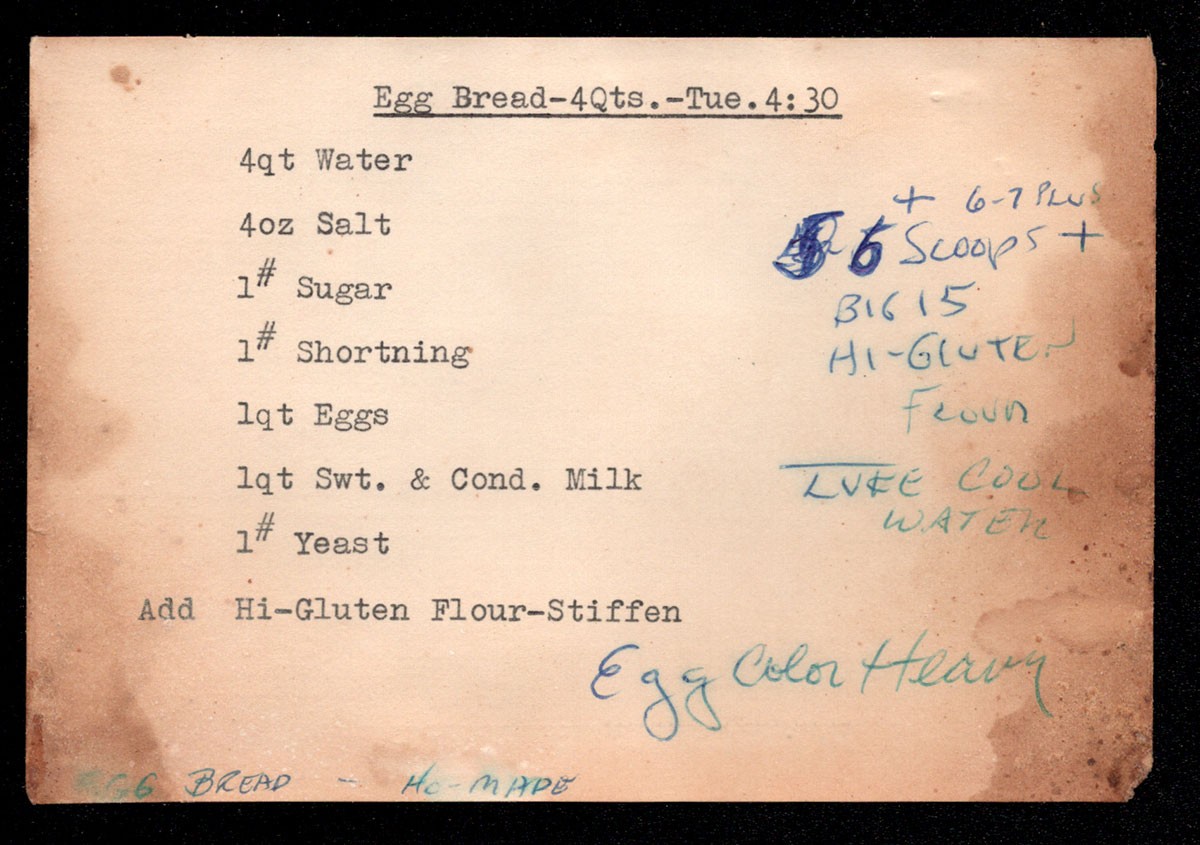 Egg Bread-4Qts.-Tue.4:30
4qt Water
4oz Salt
1# Sugar
1# Shortning
1qt Eggs
1qt Swt. & Cond. Milk
1# Yeast
Add Hi-Gluten Flour-Stiffen
+ 6-7 PLUS
5 Scoops +
BIG 15
HI-GLUTEN
FLOUR
LUKE COOL
WATER
Egg Color Heavy
EGG BREAD - HO-MADE